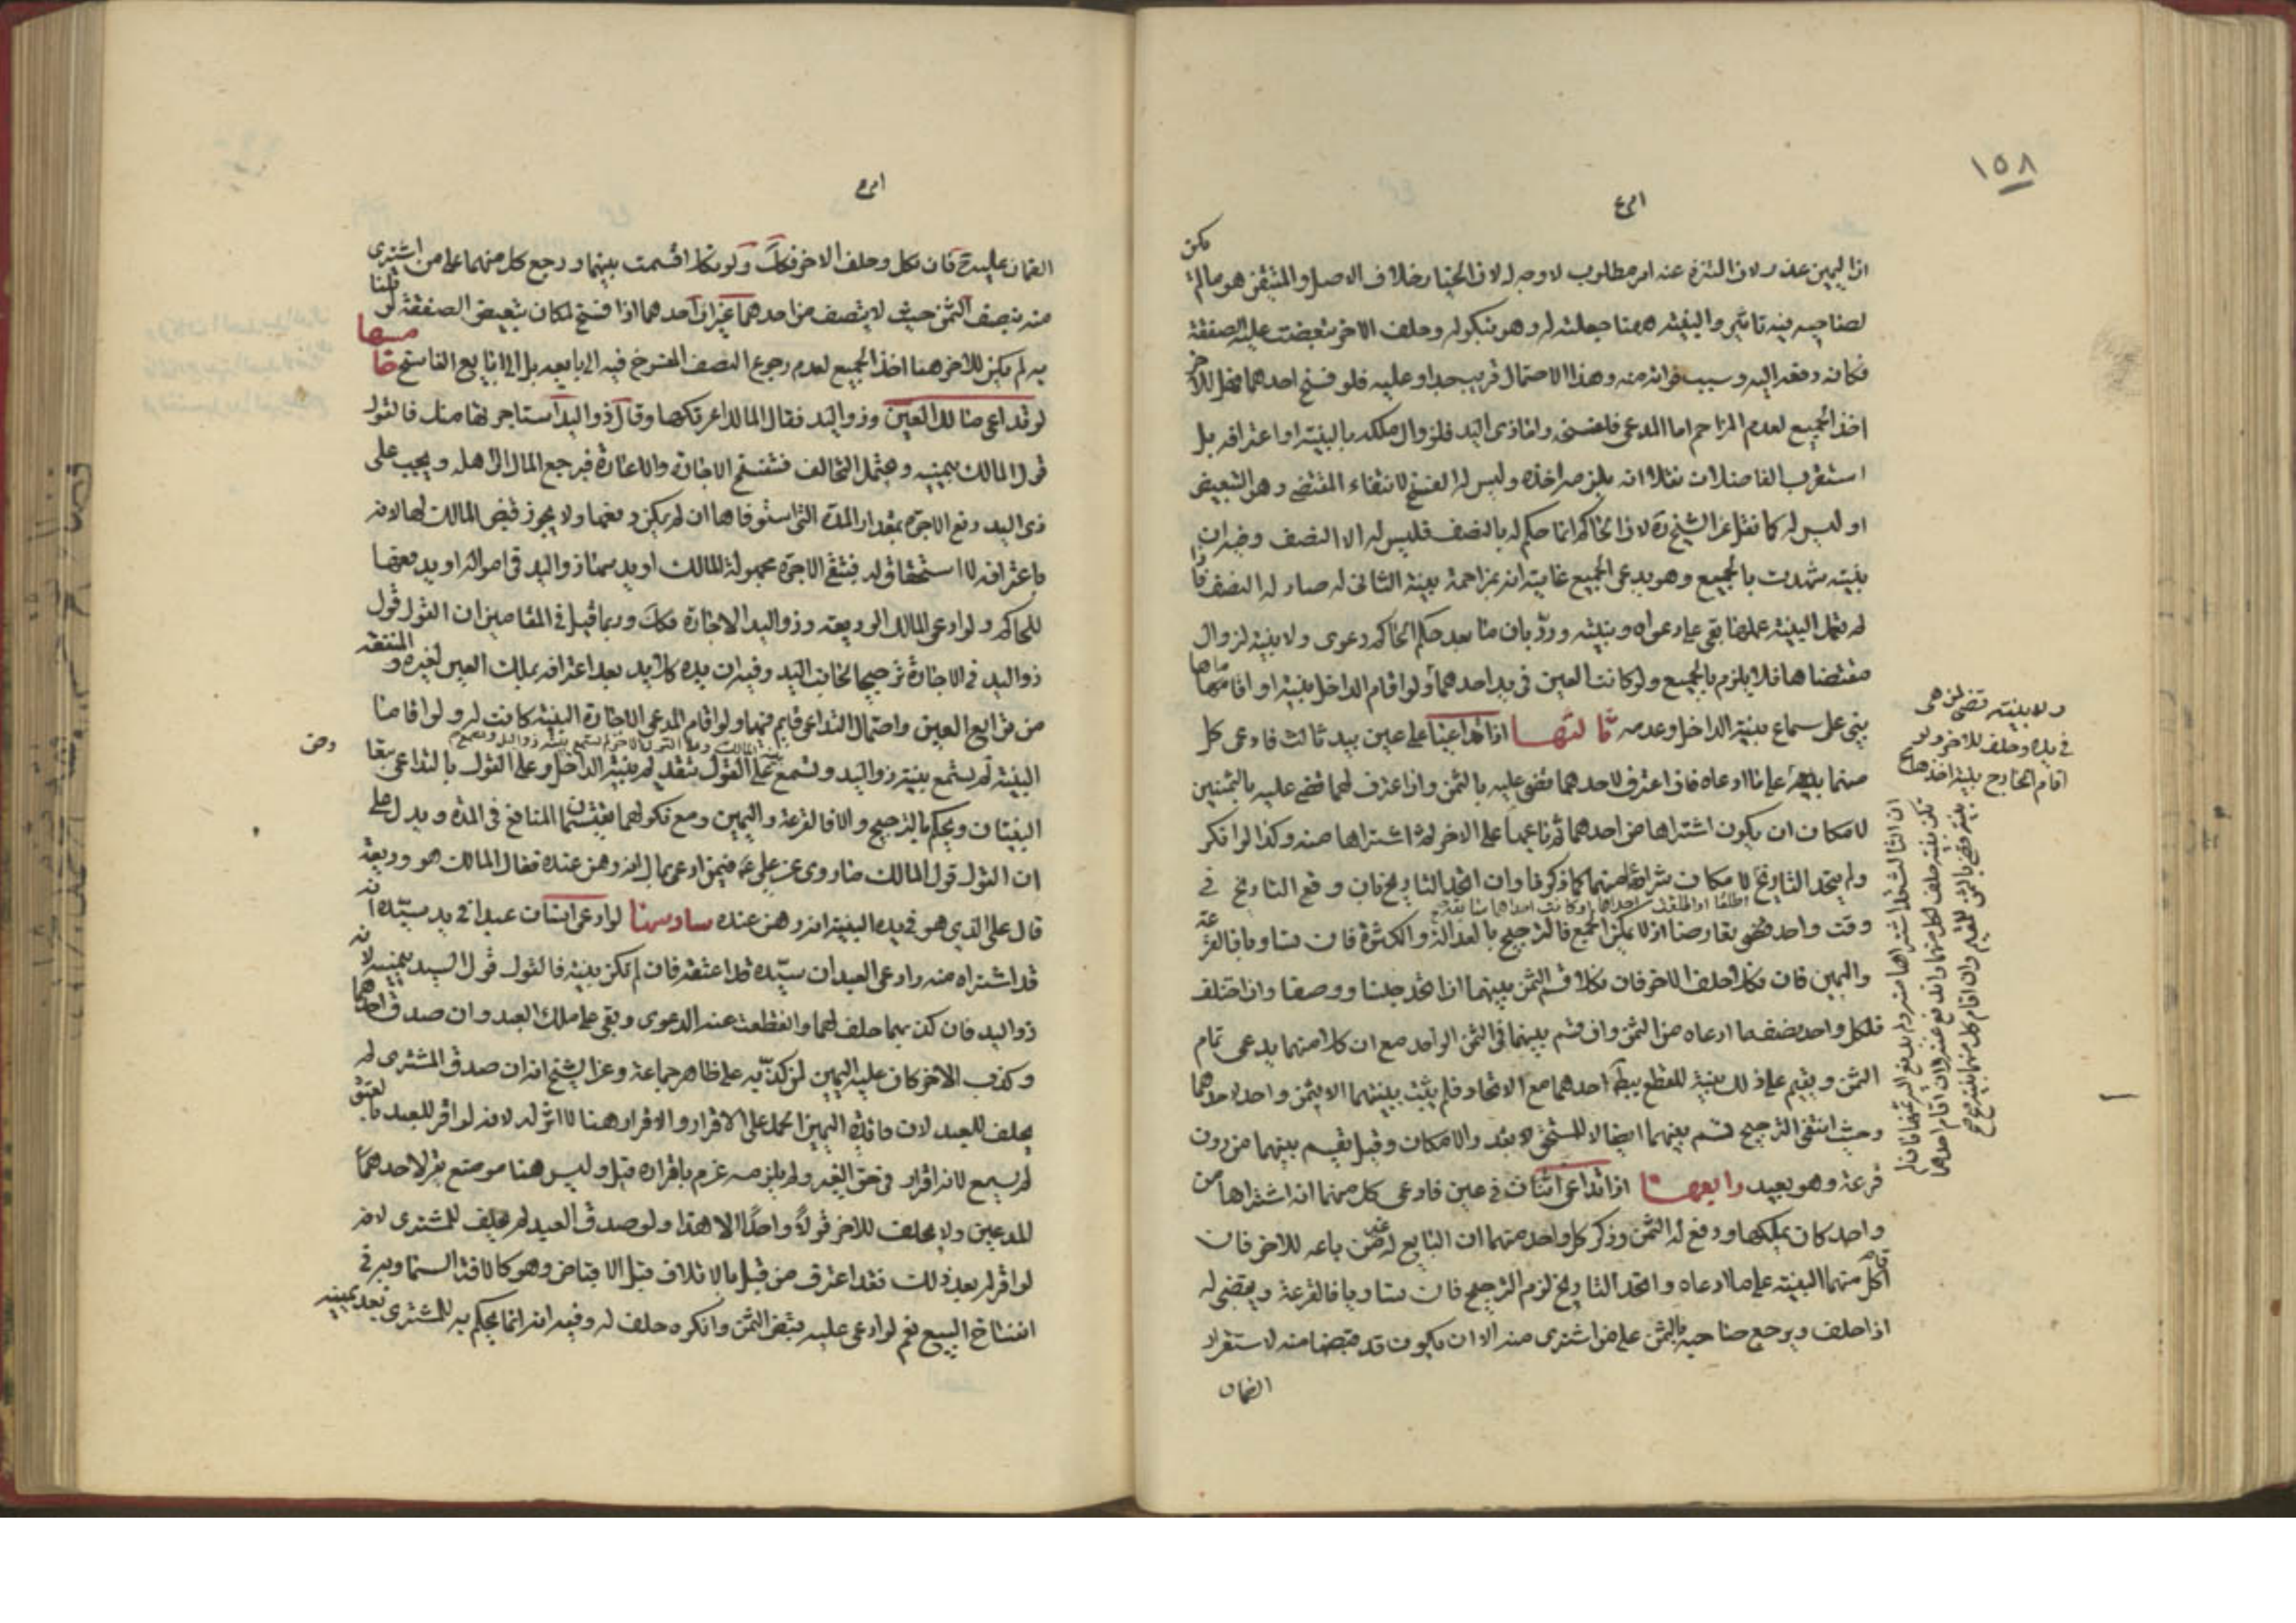 ١٥٨
لصاحبه فيه تاثير والبينة ههنا جعلته له وهو بنكوله وحلف الاخر تبعضت عليه الصفقة
فكانه دفعه اليه وسبب فواته منه وهذا الاحتمال قريب جدا وعليه فلو فسخ احدهما فهل للاخر
اخذ الجميع لعدم المزاحم اما المدعى فلفسخه واما ذى اليد فلزوال ملكه بالبينة او اعترافه بل
استقرب الفاضلان مثلا انه يلزمه اخذه وليس له الفسخ لانتفاء المقتضى وهو التبعيض
او ليس له كما نقل عن الشيخ ره لان الحاكم انما حكم له بالنصف فليس له الا النصف وفيه ان
بينته شهدت بالجميع وهو يدعى الجميع غايته انه بمزاحمة بينة الثانى له صار له النصف فاذا
لم تعمل البينة عملها بقى على دعواه وبينته وردّ بان ما بعد حكم الحاكم دعوى ولا بينة لزوال
مقتضاها فلا يلزم بالجميع ولو كانت العين فى يد احدهما ولو اقام الداخل بينة او اقاماها
بنى على سماع بينة الداخل وعدمه ثالثها اذا تداعيا على عين بيد ثالث فادعى كل
منهما بيعه على ما ادعاه فان اعترف لاحدهما قضى عليه بالثمن وان اعترف لهما قضى عليه بالثمنين
لامكان ان يكون اشتراها من احدهما ثم باعها على الاخر ثم اشتراها منه وكذا لو انكر
ولم يتحد التاريخ لامكان شرائه منهما كما ذكرنا وان اتحد التاريخان وقع التاريخ فى
وقت واحد فقد تعارضا اذ لا يمكن الجميع فالترجيح بالعدالة والكثرة فان تساويا فالقرعة
واليمين فان نكل احلف الاخر فان نكلا قسم الثمن بينهما اذا اتحد جنسا ووصفا وان اختلف
فلكل واحد نصف ما ادعاه من الثمن وان قسم بينهما فى الثمن الواحد مع ان كلا منهما يدعى تمام
الثمن ويقيم على ذلك بينة للقطع ببطلان احدهما مع الاتحاد فلم يثبت ببينتهما الا ثمن واحد لاحدهما
وحيث انتفى الترجيح قسم بينهما ايضا لا للشخصى لا بعد والامكان وقيل يقسم بينهما من دون
قرعة وهو بعيد رابعها اذا تداعى اثنان فى عين فادعى كل منهما انه اشتراها من
واحد كان يملكها ودفع له الثمن وذكر كل واحد منهما ان البايع له غير من باعه للاخر فان
اقام كل منهما البينة على ما ادعاه واتحد التاريخ لزم الترجيح فان تساويا فالقرعة ويقضى له
اذا حلف ويرجع صاحبه بالثمن على من اشترى منه الا ان يكون قد قبضها منه لاستقرار
الضمان
ولا بينة قضى لمن هى
فى يده وحلف للاخر ولو
اقام الخارج بينة اخذها
الضمان عليه فان نكل وحلف الاخر فكك ولو نكلا اقسمت بينهما ورجع كل منهما على من اشترى
منه بنصف الثمن حيث لا يتصف من احدهما غير ان احدهما اذا فسخ لمكان تبعيض الصفقة لو قلنا
به لم يكن للاخر هنا اخذ الجميع لعدم رجوع النصف المفسوخ فيه الى بايعه بل الى بايع الفاسخ خامسها
لو تداعى مالك العين وذو اليد فقال المالك اعرتكها وقال ذو اليد استاجرتها مثلا فالقول
قول المالك بيمينه ويحتمل التحالف فتنفسخ الاجارة والاعارة فيرجع المال الى اهله ويجب على
ذى اليد دفع الاجرة بمقدار المدة التى استوفاها ان لم يكن دفعها ولا يجوز قبض المالك لها لانه
باعترافه لا استحقاق له فتبقى الاجرة مجهولة المالك او يدسها ذو اليد فى امواله او يدفعها
للحاكم ولو ادعى المالك الوديعة وذو اليد الاجارة فكك وربما قيل فى المقامين ان القول قول
ذو اليد فى الاجارة ترجيحا لجانب اليد وفيه ان يده كلا يد بعد اعترافه بملك العين لغيره والمنفعة
من توابع العين واحتمال التداعى قايم فيهما ولو اقام المدعى الاجارة البينة كانت له ولو اقاما
البينة لم تسمع بينة ذو اليد وتسمع على القول بتقديم بينة الداخل وعلى القول بالتداعى
البينتان ويحكم بالترجيح والا فالقرعة واليمين ومع نكولهما يقتسمان المنافع فى المدة ويدل على
ان القول قول المالك ما روى عن على ع فيمن ادعى مال انه رهن عنده فقال المالك هو وديعة
قال على الذى هو فى يده البينة انه رهن عنده سادسها لو ادعى انسان عبدا فى يد سيّده انه
قد اشتراه منه وادعى العبد ان سيّده قد اعتقه فان لم تكن بينة فالقول قول السيد بيمينه لانه
ذو اليد فان كذبهما حلف لهما وانقطعت عنه الدعوى وبقى على ملك العبد وان صدق احدهما
وكذب الاخر كان عليه اليمين لمن كذّبه على ظاهر جماعة وعن الشيخ انه ان صدق المشترى لم
يحلف للعبد لان فايدة اليمين الحمل على الاقرار والاقرار هنا لا اثر له لانه لو اقر للعبد بالعتق
لم يسمع لانه اقرار فى حق الغير ولم يلزمه غرم باقراره قبل وليس هنا موضع يقر لاحدهما
المدعيين ولا يحلف للاخر قولا واحدا الا هذا ولو صدق العبد لم يحلف للمشترى لانه
لو اقر له بعد ذلك فقد اعترف من قبل بالاتلاف قبل الاقباض وهو كالافة السماوية فى
انفساخ البيع نعم لو ادعى عليه قبض الثمن وانكره حلف له وفيه انه انما يحكم به للمشترى بعد يمينه